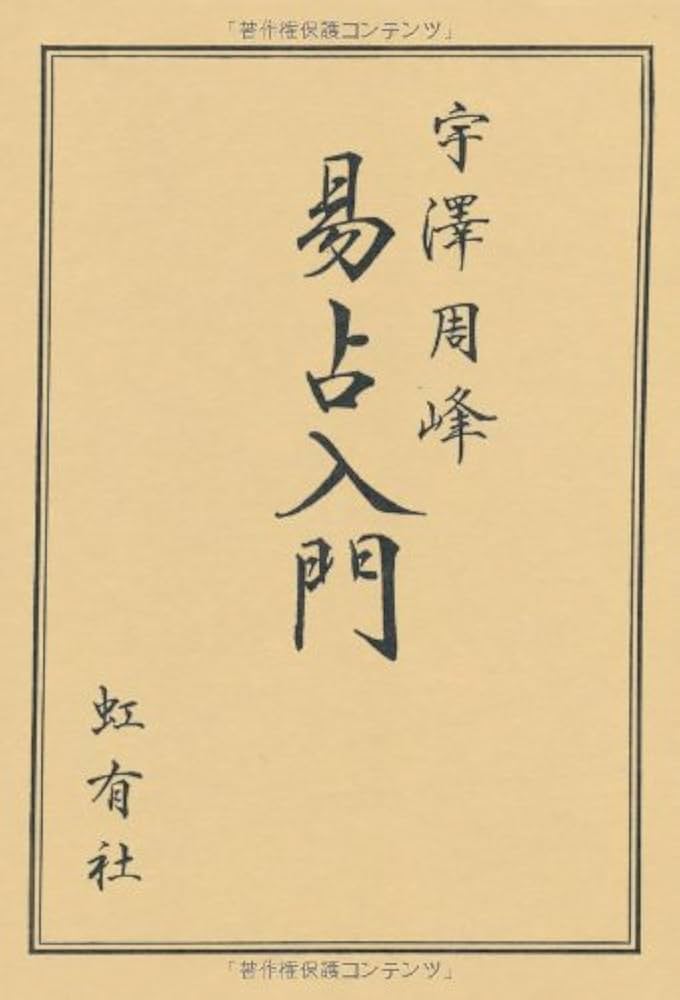 「著作権保護コンテンツ」
宇澤周峰
易占入門
虹有社
「著作権保護コンテンツ」